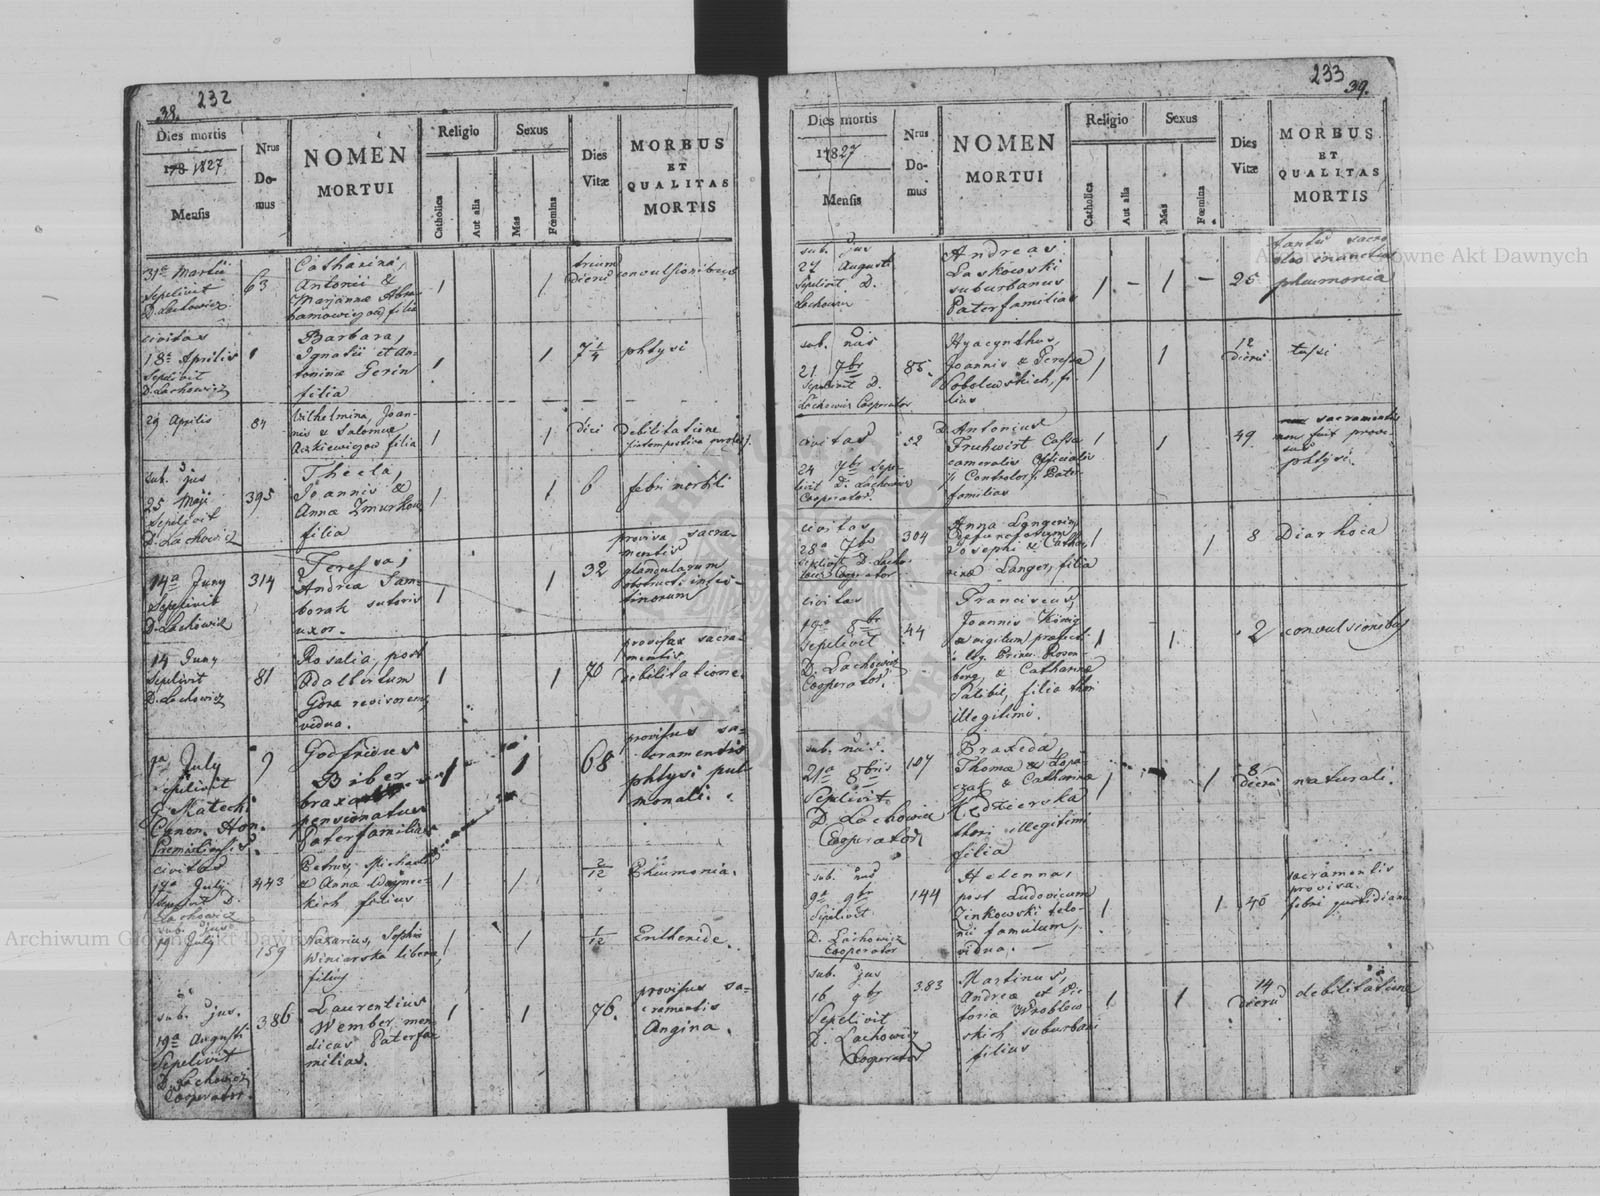 38. 232
Dies mortis
1827
Mensis
Nrus
Do-
mus
NOMEN
MORTUI
Religio
Catholica
Aut alia
Sexus
Mas
Fœmina
Dies
Vitæ
MORBUS
ET
QUALITAS
MORTIS
31a Martii
Sepelivit
D. Lachowicz
63
Catharina,
Antonii &
Marjannæ Abra-
hamowiczow filia
1
1
trium
dierum
convulsionibus
civitas
18a Aprilis
Sepelivit
D. Lachowicz
1
Barbara,
Ignatii et An-
toninæ Gerin
filia
1
1
7 1/4
phtysi
29 Aprilis
84
Vilhelmina, Joan-
nis & Salomeæ
filia
1
1
diei
debilitatione
sub. jus
25 Maji
Sepelivit
D. Lachowicz
395
Thecla,
Joannis &
Annæ
filia
1
1
6
febri
14a Juny
Sepelivit
D. Lachowicz
314
Teressa,
Andreæ Sam-
borah sutoris
uxor.
1
1
32
provisa sacra-
mentis
glandularum
obstructi intes-
tinorum
14 Juny
Sepelivit
D. Lachowicz
81
Rosalia, post
Adalbertum
Góra revisorem,
vidua.
1
1
70
provisa sacra-
mentis
debilitatione.
July
Sepelivit
Canon. Hon.
Premisliensis
Godfridus
Biber
pensionatus
Paterfamilias
1
1
68
provisus sa-
cramentis
phtysi pul-
monali.
civitas
17a July
Sepelivit D.
Lachowicz
443
Petrus, Michaelis
& Annæ
filius
1
1
2/12
Pheumonia.
sub. jus
19 July
159
Nazarius, Sophiæ
Winiarska liberæ,
filius
1
1
1/12
sub. jus.
19a Augusti
Sepelivit
D. Lachowicz
Cooperator.
386
Laurentius
Wember, men-
dicus Paterfa-
milias.
1
1
76.
provisus sa-
cramentis
Angina.
233 39.
Dies mortis
1827
Mensis
Nrus
Do-
mus
NOMEN
MORTUI
Religio
Catholica
Aut alia
Sexus
Mas
Fœmina
Dies
Vitæ
MORBUS
ET
QUALITAS
MORTIS
sub. jus
27 Augusti
Sepelivit D.
Lachowicz
Andreas
Laskowski
suburbanus
Paterfamilias
1
1
25
pheumonia
sub. nas
21 7br
Sepelivit D.
Lachowicz Cooperator
85.
Hyacynthus,
Joannis & Teressæ
Sobolewskich, fi-
lius
1
1
12
dierum
tussi
civitas
24 7br Sepe-
livit D. Lachowicz
Cooperator.
52
D. Antonius
Fruhwirt Cassæ
cameralis Officialis
Controlor, Pater-
familias
1
1
49.
sacramentis
non fuit provi-
sus
phtysi.
civitas
28a 7br
Sepelivit D. Lacho-
wicz Cooperator
304
Anna Langerin
defunctorum
Josephi & Catha-
rinæ Langer, filia
1
1
8
Diarhoea
civitas
8br
Sepelivit
D. Lachowicz
Cooperator.
44
Franciscus,
Joannis König
Rosen-
berg, & Catharinæ
filia thori
illegitimi.
1
1
2
convulsionibus
sub. nas.
21a 8bris
Sepelivit
D. Lachowicz
Cooperator
107
Praxeda,
Thomæ
& Catharinæ
Kędzierska
thori illegitimi
filia
1
1
8
dierum
naturali.
sub. nas
9a 9br
Sepelivit
D. Lachowicz
Cooperator
144
Helenna,
post Ludovicum
Zinkowski telo-
nii famulum,
vidua.
1
1
46
sacramentis
provisa.
febri quotidiana
sub. jus
16 9br
Sepelivit
D. Lachowicz
Cooperator
383
Martinus,
Andreæ et Vic-
toriæ Wroblew-
skich suburbani
filius
1
1
14
dierum
debilitatione
Archiwum Główne Akt Dawnych
Archiwum Główne Akt Dawnych